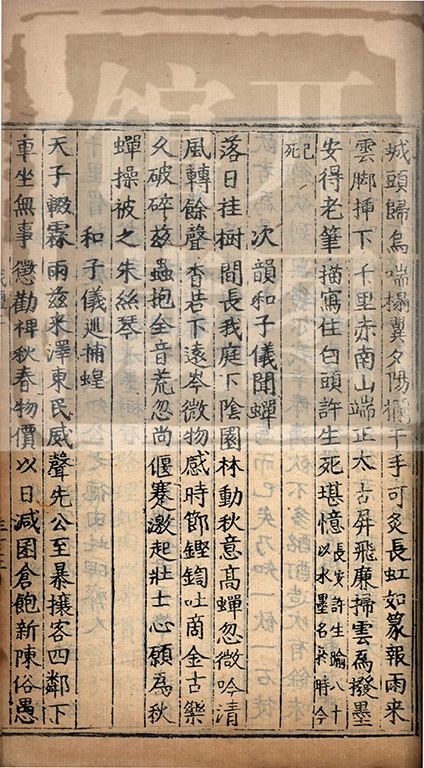 城頭歸烏喘搨翼夕陽欄干手可炙長虹如篆報雨來
雲脚挿下千里赤南山端正太古屏飛廉掃雲爲撥墨
安得老筆描寫住白頭許生死堪憶長安許生踰八十以水墨名家時今
已死
次韻和子儀聞蟬
落日挂樹間長我庭下陰園林動秋意高蟬忽微吟清
風轉餘聲杳若下遠岑微物感時節鏗鍧吐商金古樂
久破碎兹蟲抱全音荒忽尚偃蹇激起壯士心願爲秋
蟬操被之朱絲琴
和子儀巡捕蝗
天子輟霖雨兹來澤東民威聲先公至暴攘客四鄰下
車坐無事懲勸裨秋春物價以日減囷倉飽新陳俗愚